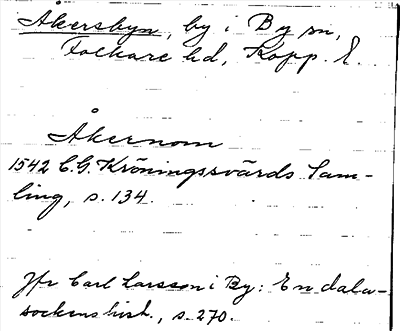 Åkersbyn, by i By sn,
Folkare hd, Kopp. l.
Åkernom
1542 C.G. Kröningssvärds Sam-
ling, s. 134.
Jfr Carl Larsson i By: En dala-
sockens hist., s. 270.